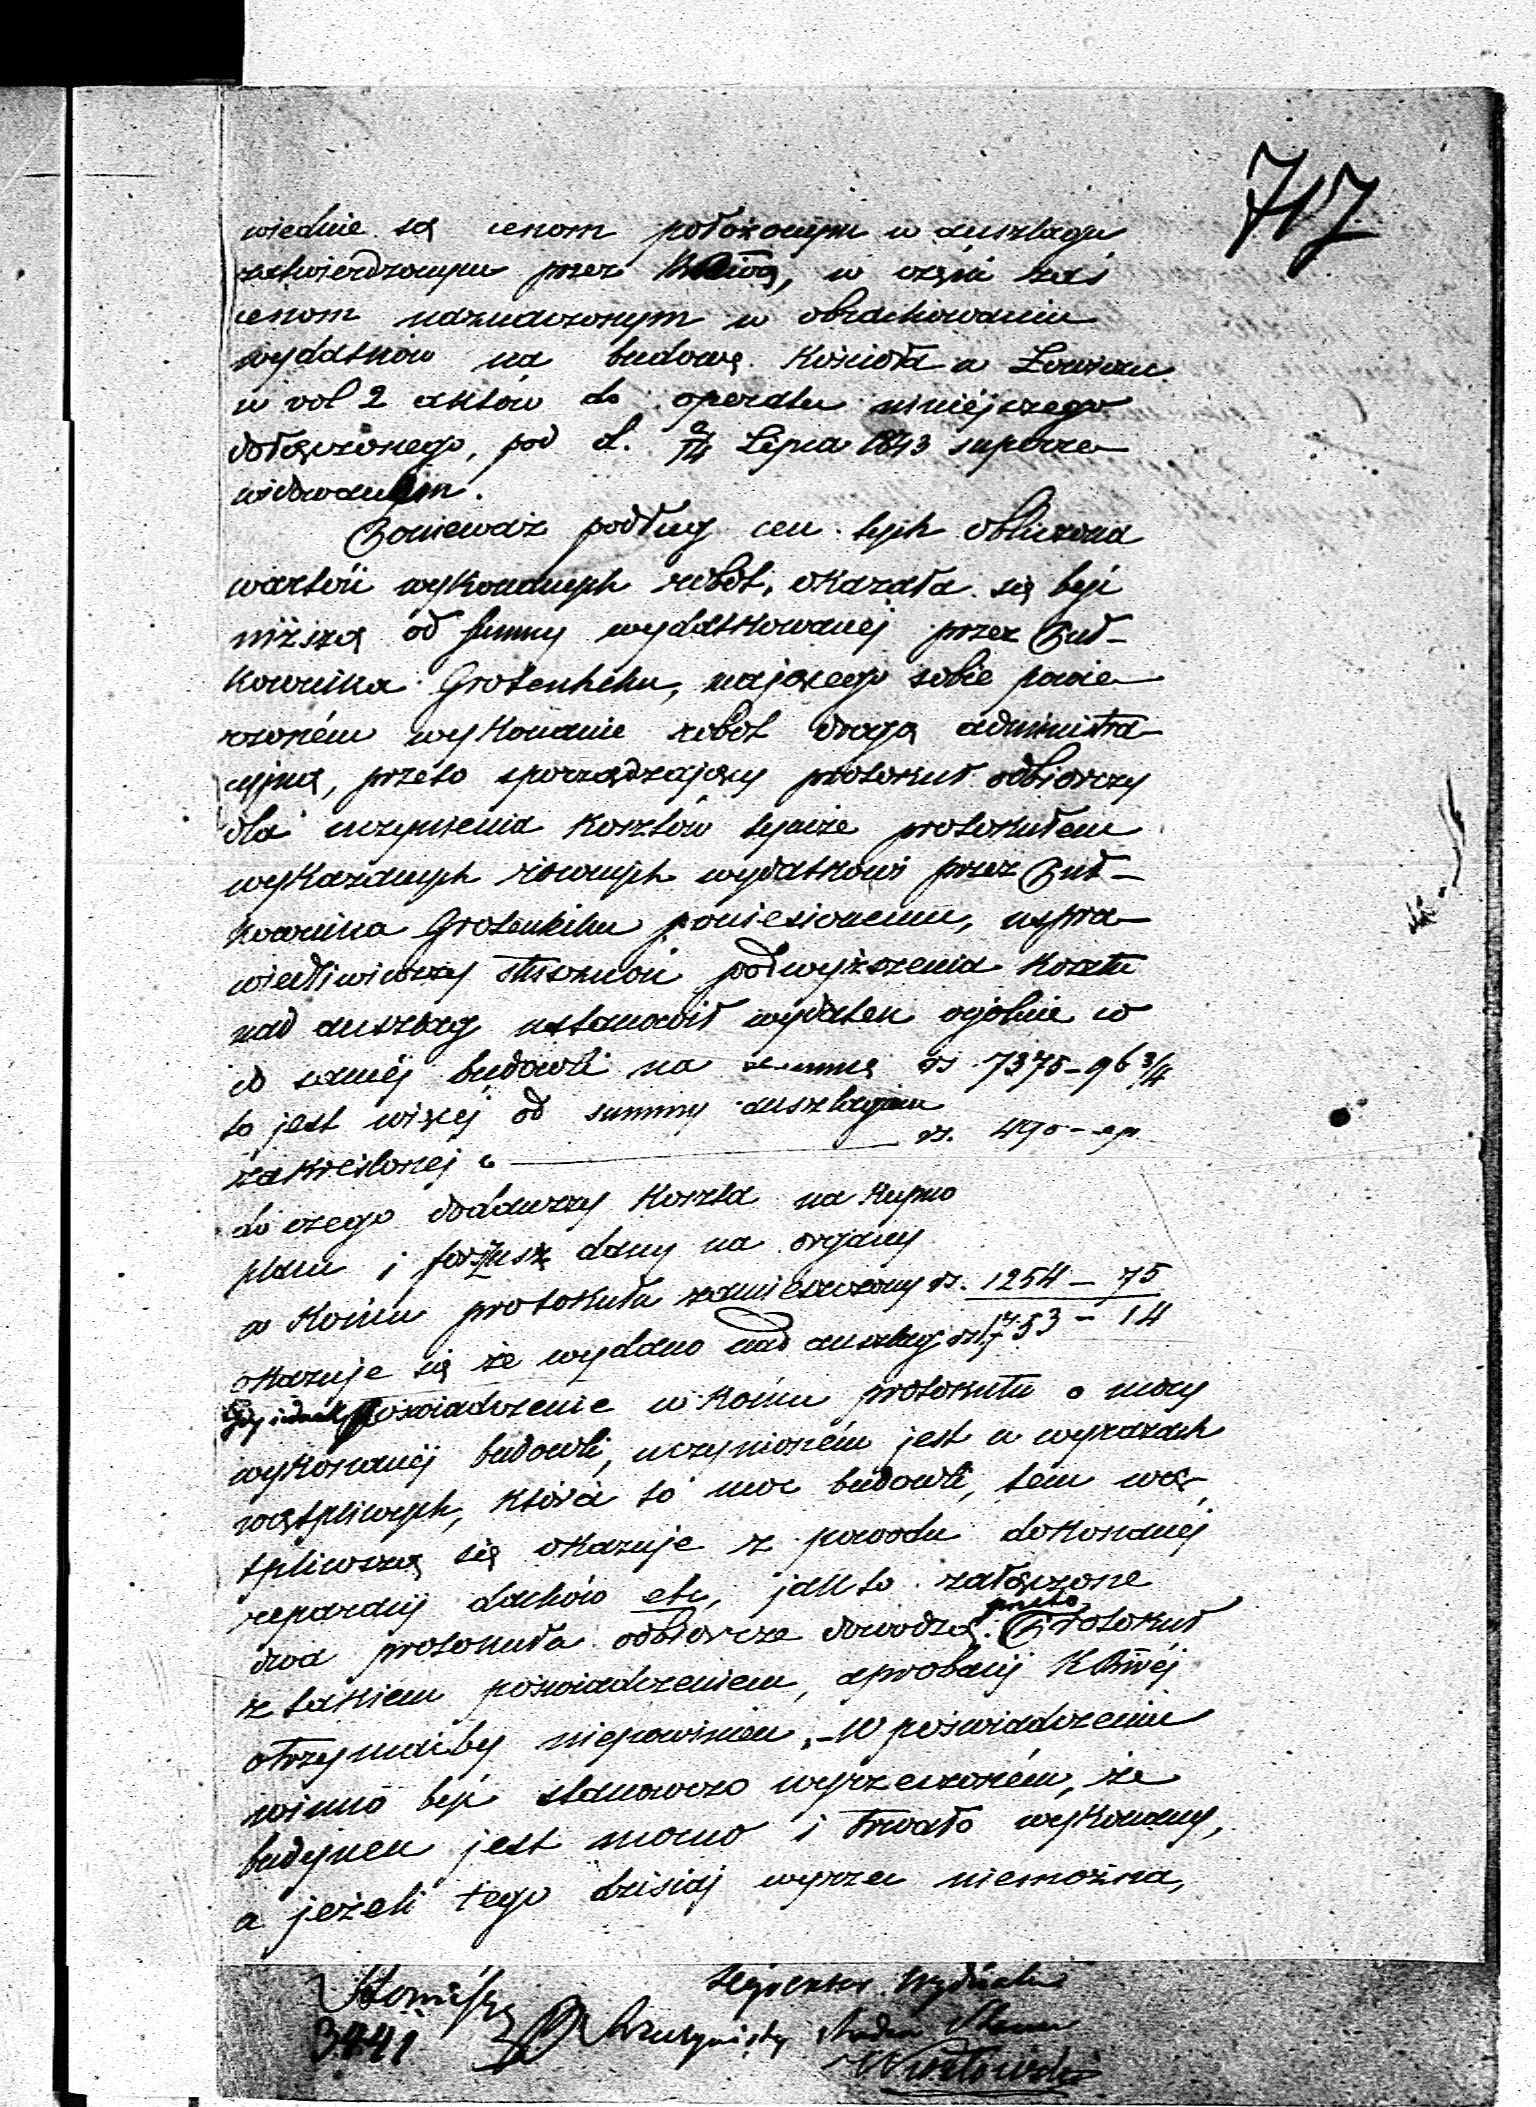 717
wiednie są cenom położonym w anszlagu
zatwierdzonym przez , w części zaś
cenom naznaczonym w obrachowaniu
wydatków na budowę Kościoła w
w vol 2 aktów do operatu niniejszego
dołączonego, pod d. 2/14 Lipca 1843 superre
widowanym.
Ponieważ podług cen tych obliczona
wartość wykonanych robót, okazała się być
niższą od summy wydatkowanej przez Puł-
kownika Grotenhelm, mającego sobie powie
rzoném wykonanie robót drogą administra-
cyjną, przeto sporządzający protokuł odbiorczy
dla uczynienia kosztów tymże protokułem
wykazanych równych wydatkowi przez Puł-
kownika Grotenhelm poniesionemu, uspra-
wiedliwiwszy słuszność podwyższenia kosztu
nad anszlag ustanowił wydatek ogólnie w
saméj budowli na summę rs. 7375-96 3/4
to jest więcej od summy anszlagiem
zakreślonej o rs. 498-
do czego dodawszy koszta na kupno
placu i forszus dany na organy
w końcu protokułu zamieszczony rs. 1254-75
okazuje się że wydano nad anszlag rs. 1753-14
Gdy jednak Poświadczenie w końcu protokułu o mocy
wykonanéj budowli, uczynioném jest w wyrazach
wątpliwych, która to moc budowli, tem wąt-
pliwszą się okazuje z powodu dokonanéj
reparacyi dachów etc, jak to załączone
dwa protokuła odbiorcze dowodzą. przeto Protokuł
z takiem poświadczeniem, aprobacyi
otrzymaćby niepowinien. W poświadczeniu
winno być stanowczo wyrzeczoném, że
budynek jest mocno i trwało wykonany,
a jeżeli tego dzisiaj wyrzec niemożna,
3441
Wydziału
Radca Stanu